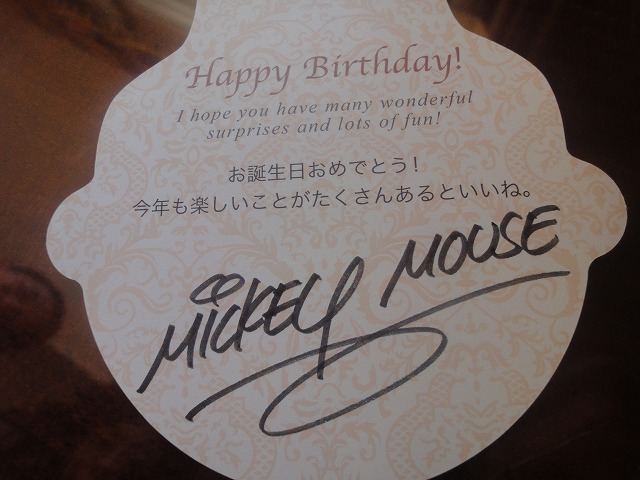 Happy Birthday!
I hope you have many wonderful
surprises and lots of fun!
お誕生日おめでとう!
今年も楽しいことがたくさんあるといいね。
MiCKEY MOUSE